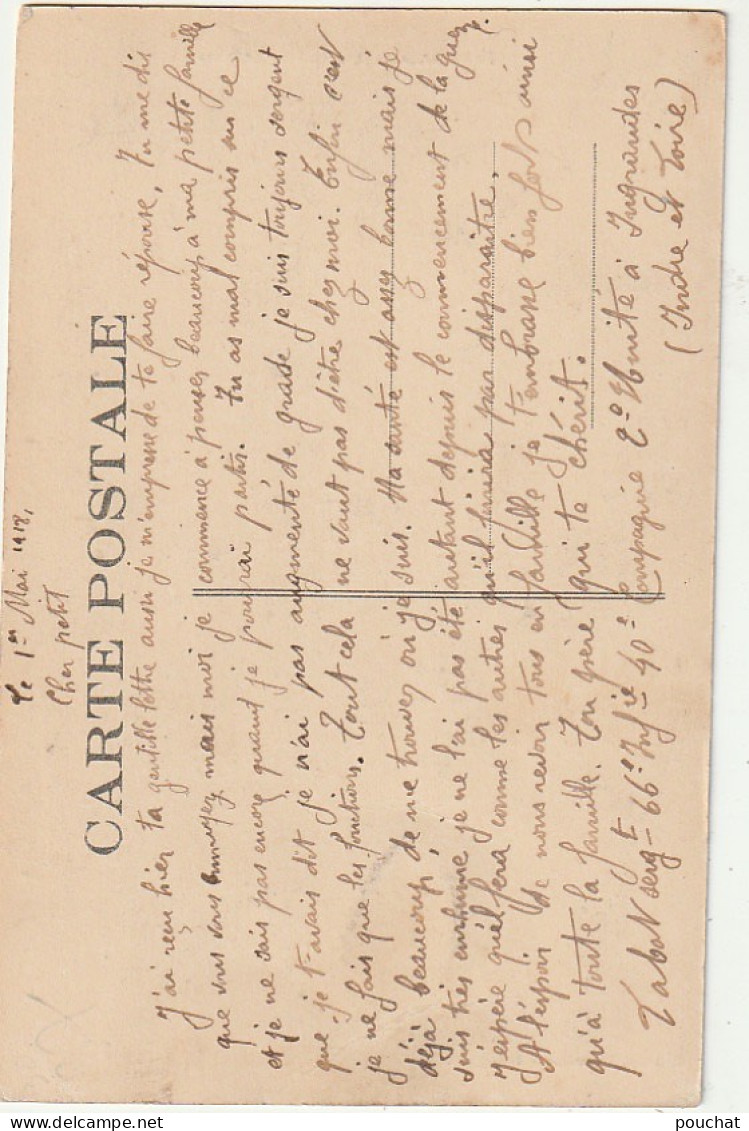 Le 1er Mai 1918,
Cher petit
CARTE POSTALE
J'ai reçu hier ta gentille lettre aussi je m'empresse de te faire réponse. Tu me dis
que vous vous ennuyez mais moi je commence à penser beaucoup à ma petite famille
et je ne sais pas encore quand je pourrai partir. Tu as mal compris sur ce
que je t'avais dit je n'ai pas augmenté de grade je suis toujours sergent
je ne fais que les fonctions. Tout cela ne vaut pas d'être chez moi. Enfin c'est
déjà beaucoup de me trouver où je suis. Ma santé est assez bonne mais je
suis très enrhumé je ne l'ai pas été autant depuis le commencement de la guerre.
J'espère qu'il fera comme les autres qu'il finira par disparaître.
A l'espoir de nous revoir tous en famille je t'embrasse bien fort ainsi
qu'à toute la famille. Ton frère qui te chérit.
Tabot sergt 66e Infie 40e Compagnie 2e Unité à Ingrandes
(Indre et Loire)
pouchat